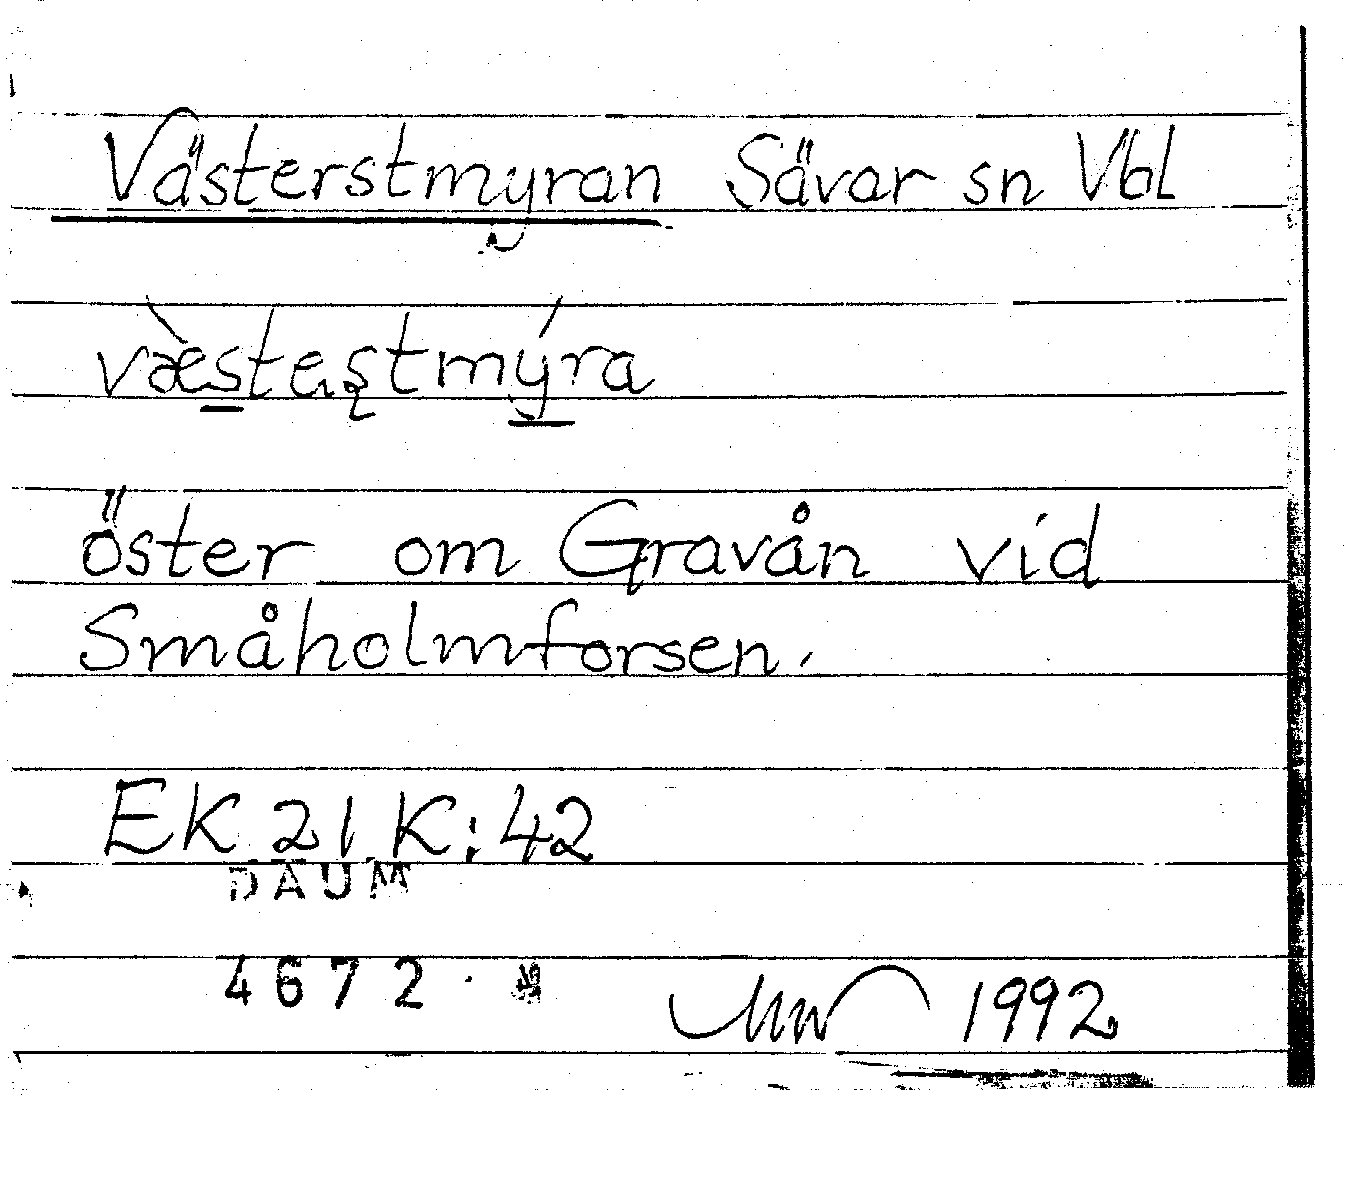 Västerstmyran Sävar sn Vbl
væ̀steştmýra
öster om Gravån vid
Småholmforsen.
EK 21 K:42
DAUM
4672
1992